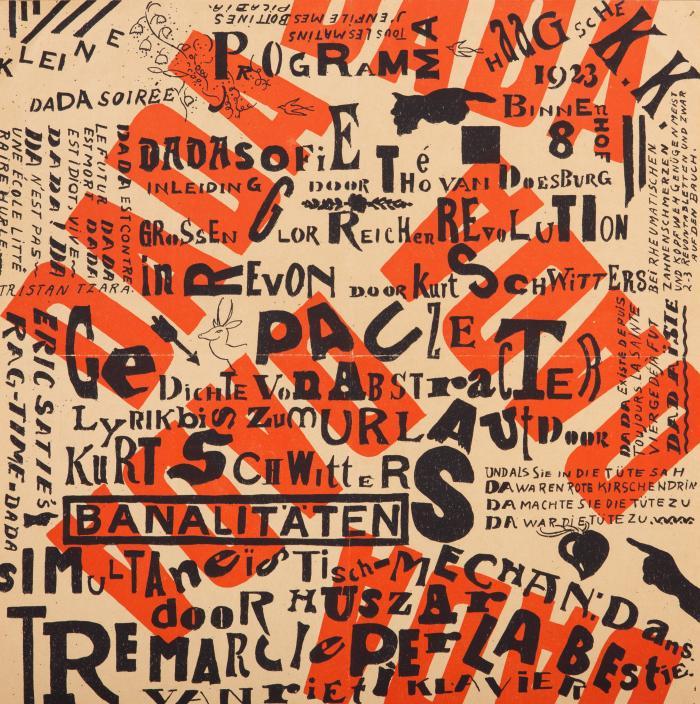 KLEINE
DADA SOIRÉE
PICABIA
J'ENFILE MES BOTTINES
TOUS LES MATINS
PROGRAMMA
HAAGSCHE K.K.
1923
BINNENHOF
8
DADASOFiE
INLEIDING DOOR THéO VAN DOESBURG
GROSSEN GLORREICHEN REVOLUTION
in REVON DOOR Kurt SCHWITTERS
PAUZE
GeDICHTE VON ABSTracTER
LyRIK bis ZUM URLAUT DOOR
KURT SCHWittERS
BANALITÄTEN
UND ALS SIE IN DIE TÜTE SAH
DA WAREN ROTE KIRSCHEN DRIN
DA MACHTE SIE DIE TÜTE ZU
DA WAR DIE TÜTE ZU.
SIMULTANeïsTisch-MECHAN: Dans.
door HUSZAr
TREMARCIe PER LA BEstie.
VAN rieti KLAVIER
DADA EST CONTRE
LE FUTUR DADA
EST MORT DADA
EST IDIOT VIVE
DADA! DADA
N'EST PAS
UNE ÉCOLE LITTÉ
RAIRE HURLE
TRISTAN TZARA.
ERIC SATIE:
RAG-TIME-DADA
BEI RHEUMATISCHEN
ZAHNENSCHMERZEN
UND KOPFNEIGUNGEN
DADA EXISTE DEPUIS
TOUJOURS LA SAINTE
VIERGE DÉJA FUT
DADAÏSTE
DADA
DADA
DADA
DADA